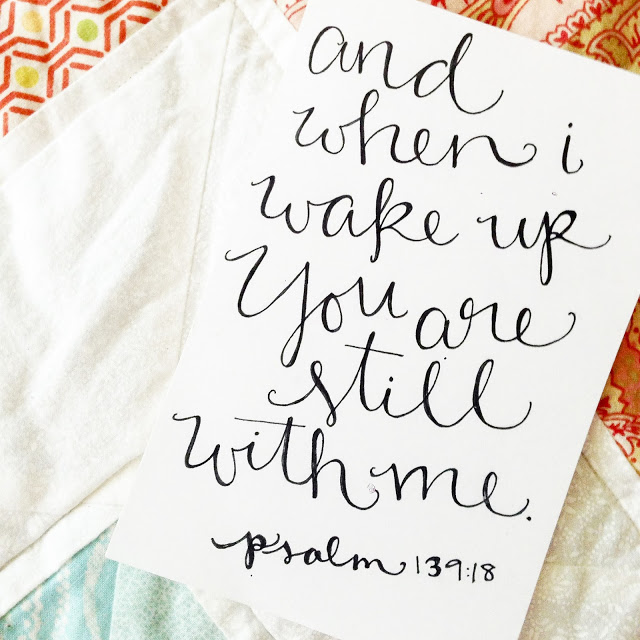 and
when i
wake up
You are
still
with me.
psalm 139:18